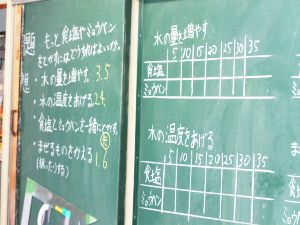 題 もっと食塩やミョウバン
をとかすにはどうすればよいか。
想 ・水の量を増やす 3.5
・水の温度をあげる 24.
・食塩とミョウバンを一緒にとかす。
・まぜるものをかえる 1.6
水の量を増やす
5 10 15 20 25 30 35
食塩
ミョウバン
水の温度をあげる
5 10 15 20 25 30 35
食塩
ミョウバン